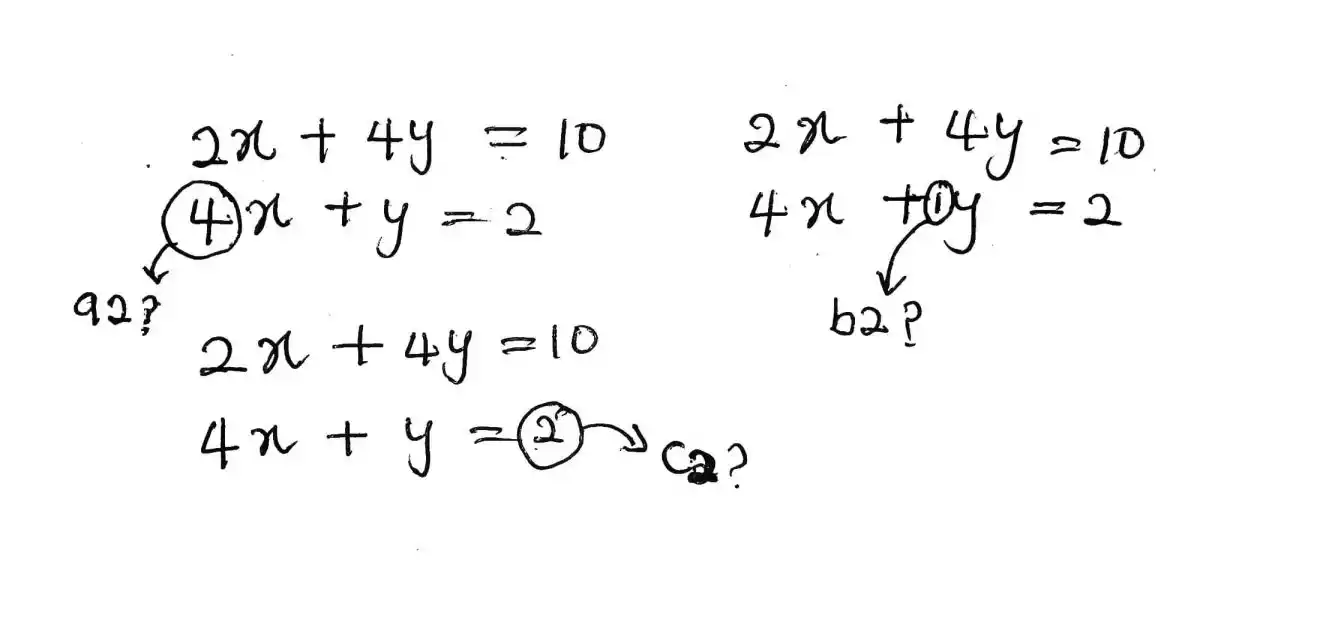 2x + 4y = 10
4x + y = 2
a2?
2x + 4y = 10
4x + 1y = 2
b2?
2x + 4y = 10
4x + y = 2
c2?